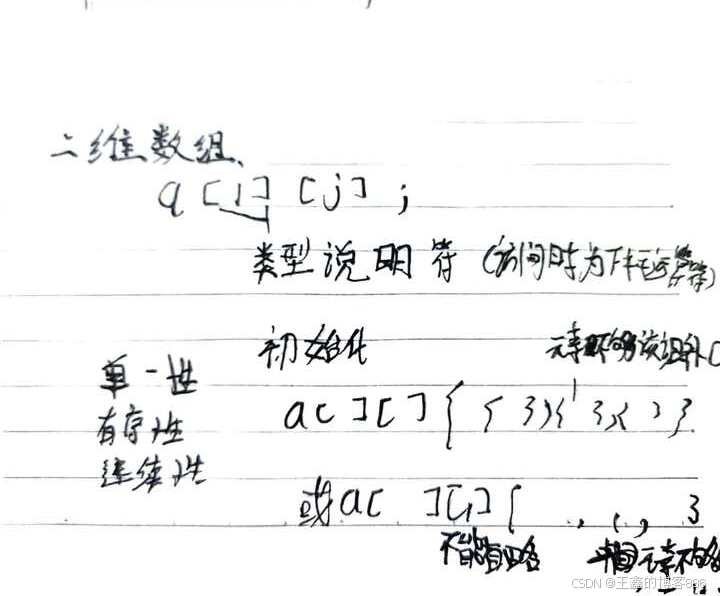 二维数组、
a[i][j];
类型说明符(访问时为下标运算符)
初始化
元素不够该组补0
单一性
有序性
连续性
a[][]{{ }{ },{ }}
或a[ ][]{ , , , }
不能省略
元素不够
CSDN @王鑫的博客896